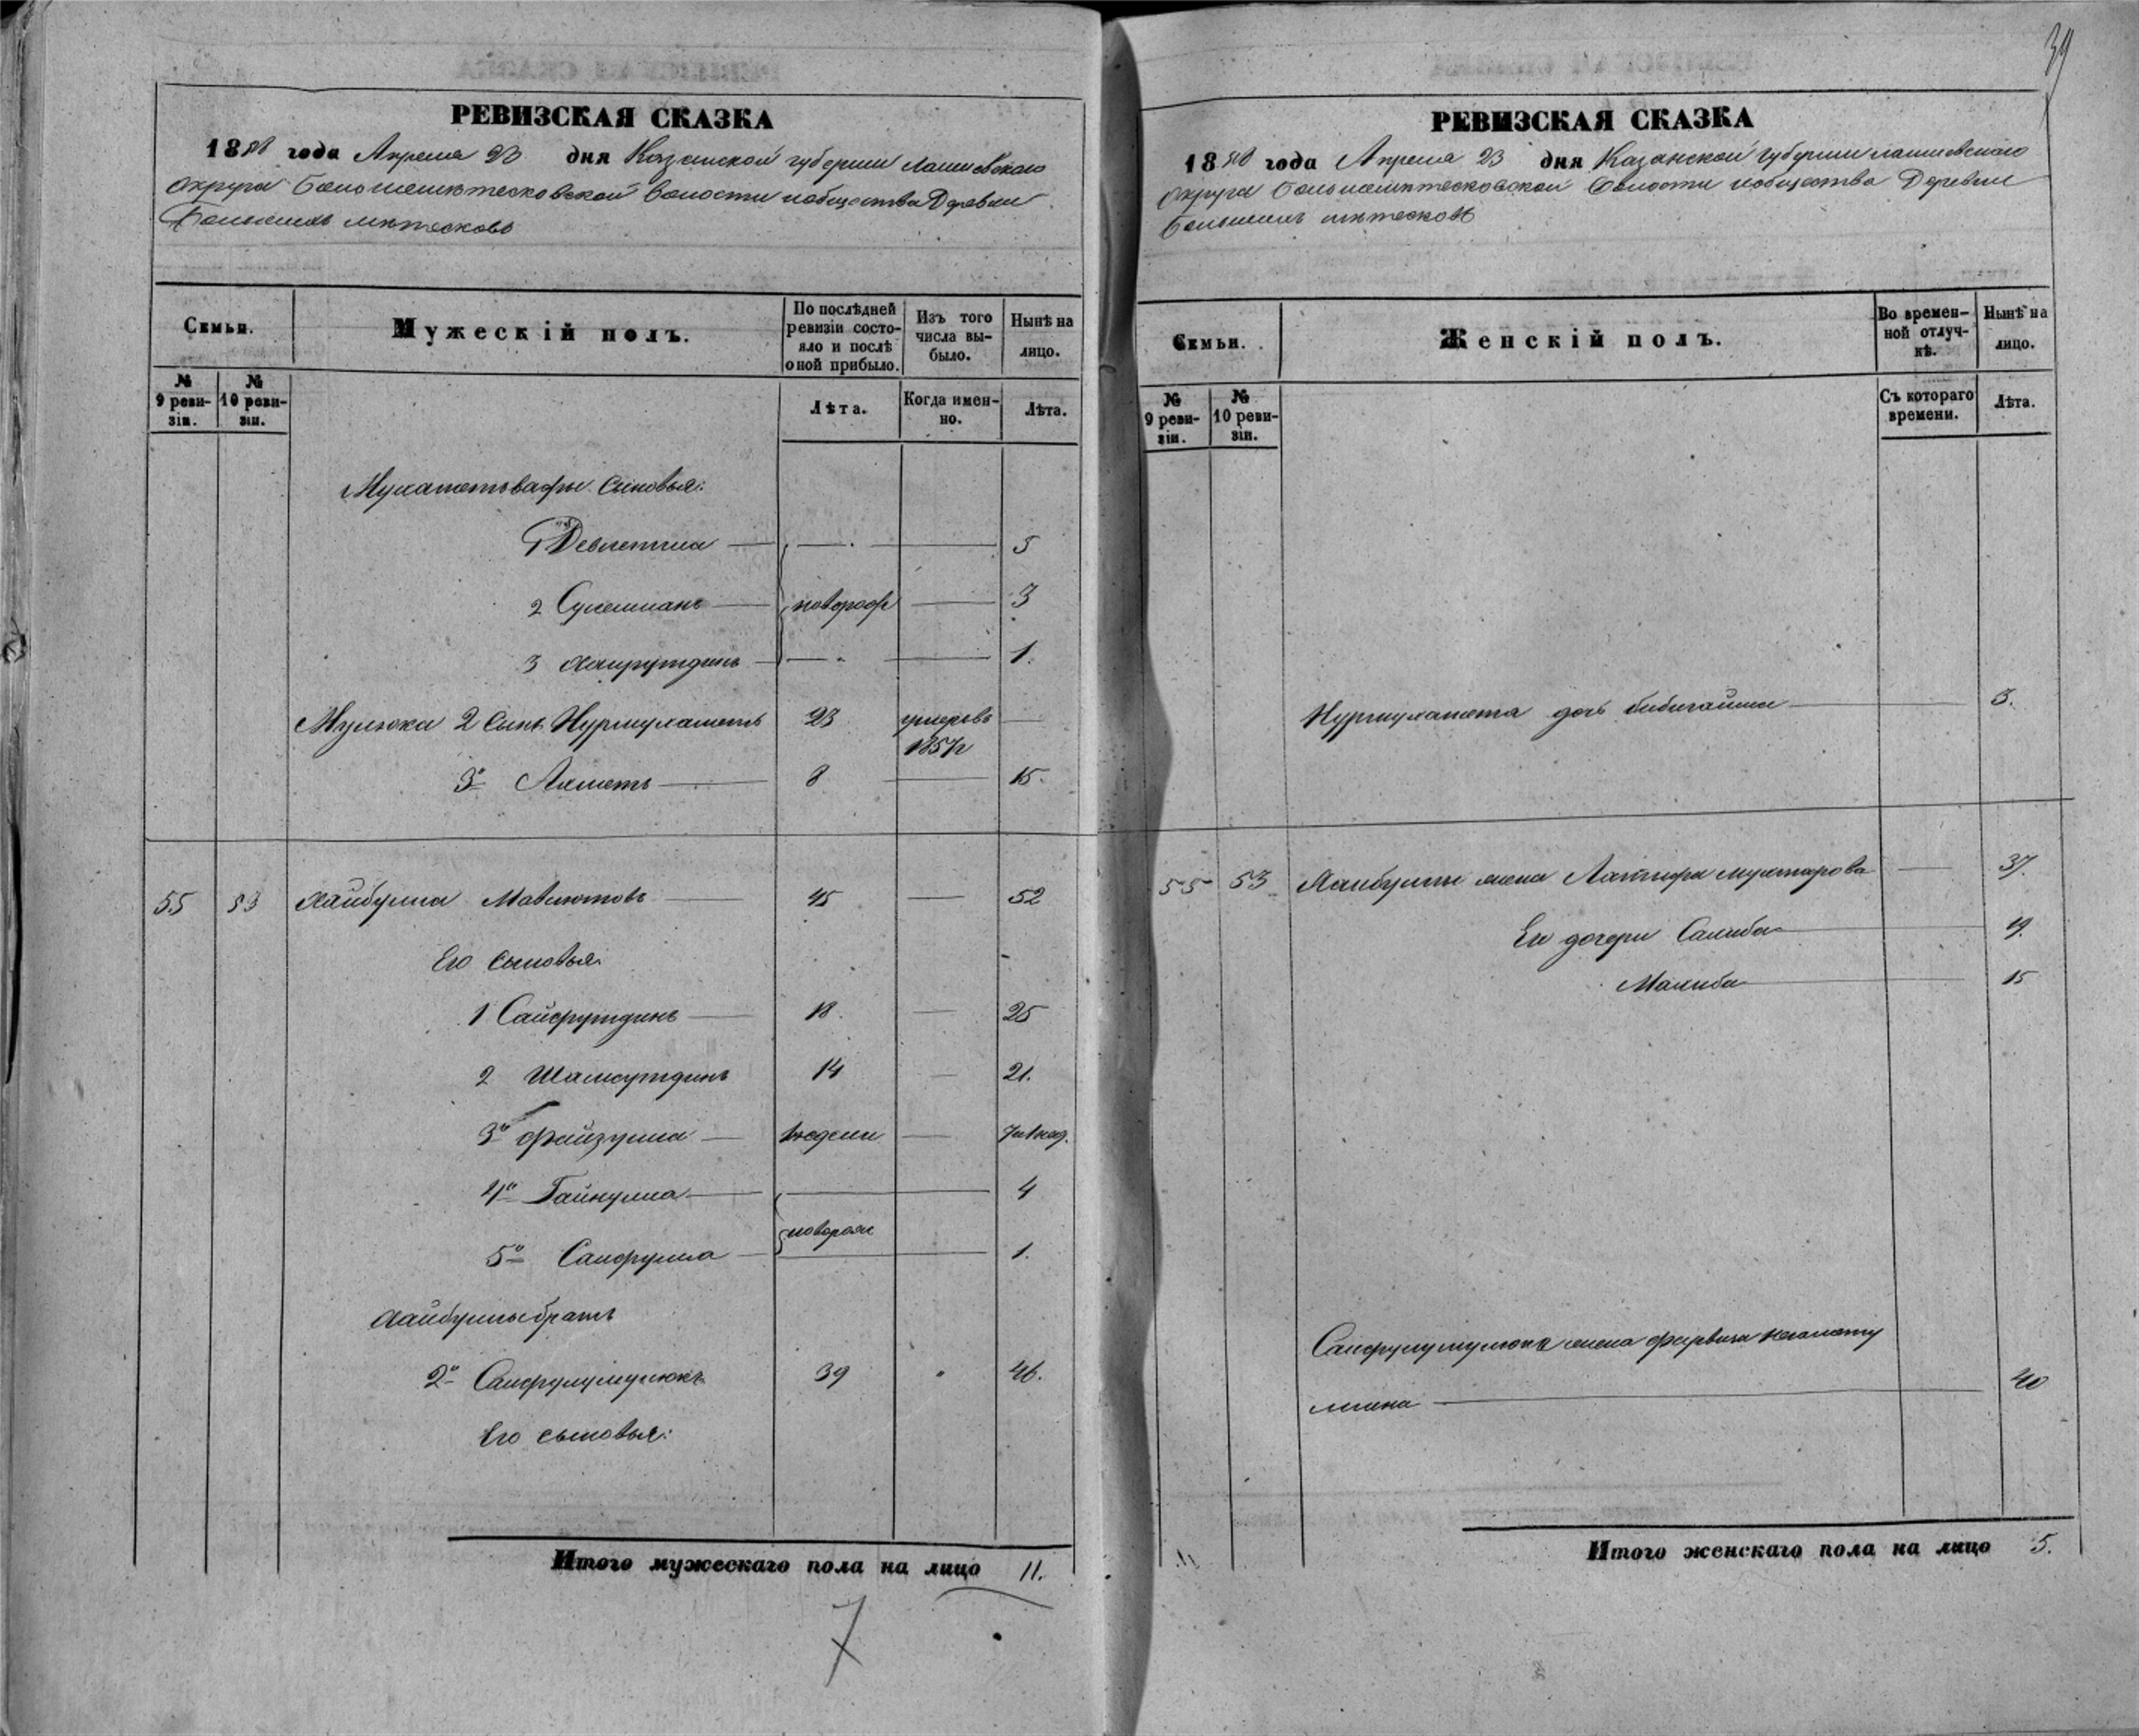 РЕВИЗСКАЯ СКАЗКА
1858 года Апреля 23 дня Казанской губернии Лаишевскаго
округа Большеметесковской волости и общества Деревни
Большихъ метесковъ
Семьи.
Мужескій полъ.
По послѣдней ревизіи состояло и послѣ оной прибыло.
Изъ того числа выбыло.
Нынѣ на лицо.
№ 9 ревизіи.
№ 10 ревизіи.
Лѣта.
Когда именно.
Лѣта.
Мухаметвафы сыновья:
1 Девлетша 5
2 Сулейманъ новорож 3
3 Хайрутдинъ 1.
Мулюка 2 сынъ Нурмухаметъ 23 умеръ въ 1857 г —
3й Ахметъ 8 — 15.
55 53 Хайбулла Мавлютовъ 45 — 52
Его сыновья:
1 Сайфутдинъ 18. — 25
2 Шамсутдинъ 14 — 21.
3й Файзулла недели — 7 и 1 нед.
4й Гайнулла 4
новорож
5й Сайфулла 1.
Хайбуллы братъ
2й Сайфулумулюкъ 39 " 46.
Его сыновья:
Итого мужескаго пола на лицо 11.
7
39
РЕВИЗСКАЯ СКАЗКА
1858 года Апреля 23 дня Казанской губернии Лаишевскаго
округа Большеметесковской волости и общества Деревни
Большихъ метесковъ
Семьи.
Женскій полъ.
Во временной отлучкѣ.
Нынѣ на лицо.
№ 9 ревизіи.
№ 10 ревизіи.
Съ котораго времени.
Лѣта.
Нурмухамета дочь бибигайша 3.
55 53 Хайбуллы жена Латифа мухтарова — 37.
Ея дочери Салиба 19.
Малиба 15
Сайфулумулюка жена
40
Итого женскаго пола на лицо 5.